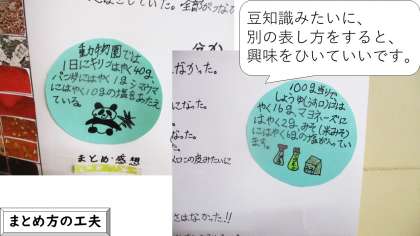 全部がなっ
動物園では
1日にキリンはやく40g、
パンダにはやく1g、シマウマ
にはやく10gの塩をあたえ
ている。
まとめ・感想
なかった。
った。
以口の夜みたいに
さはなかった!!
100g当り
しょうゆ(うす口)には
やく16g、マヨネーズに
はやく2g、みそ(米みそ)
にはやく6gの塩が入ってい
ます。
豆知識みたいに、
別の表し方をすると、
興味をひいていいです。
まとめ方の工夫